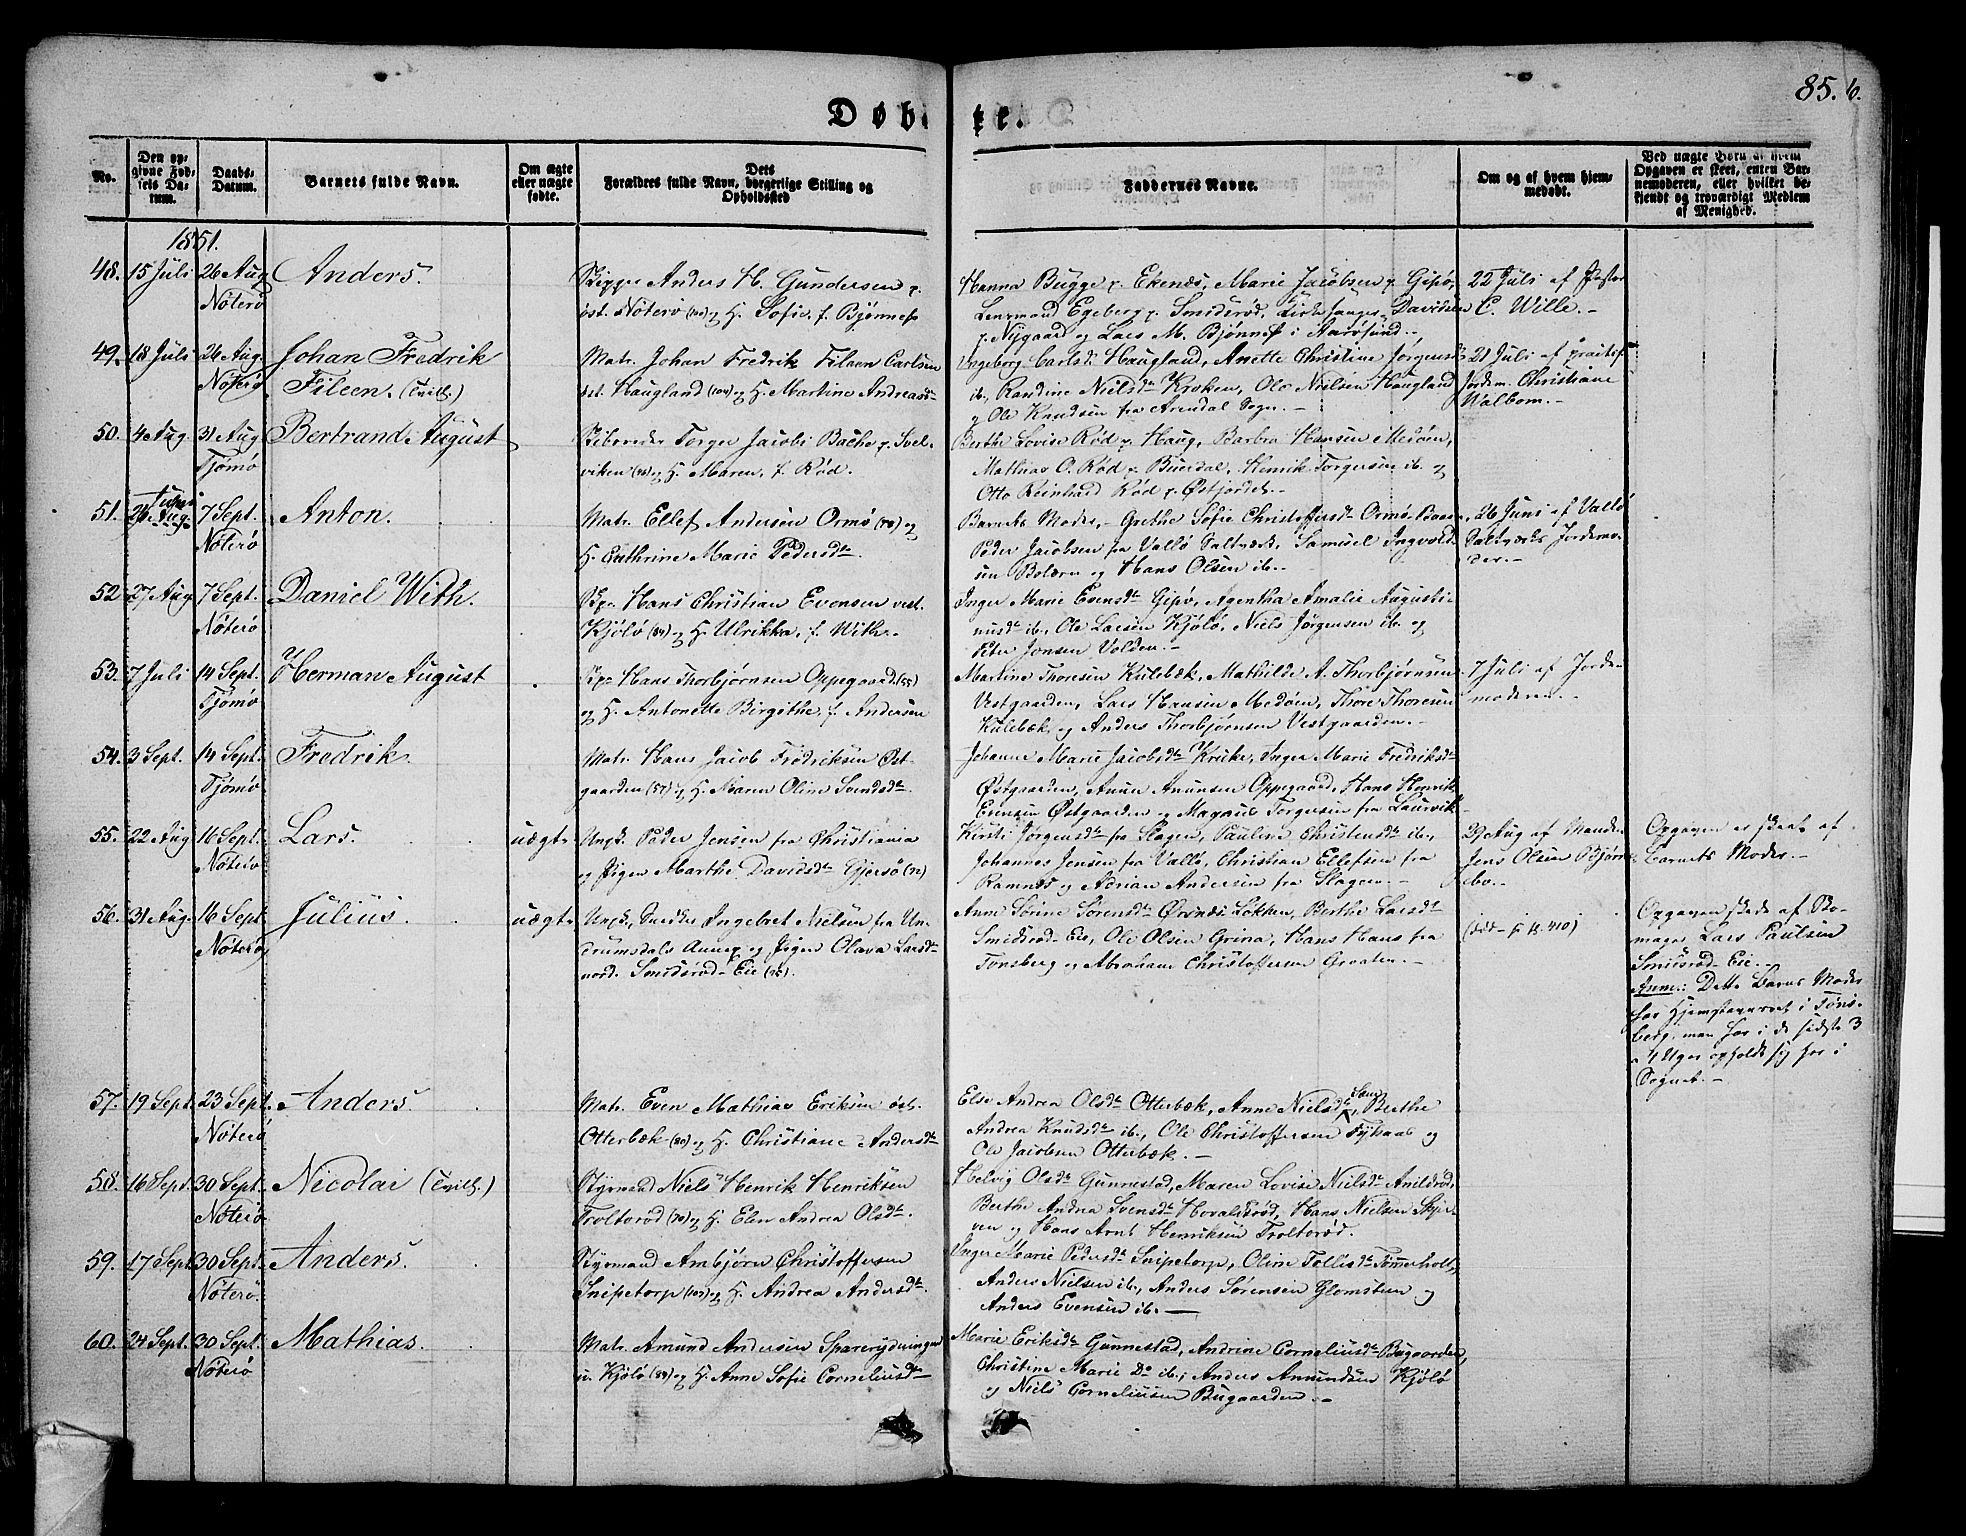 85. 6.
Døbte.
No.
Den opgivne Fødsels Datum.
Daabs-Datum.
Barnets fulde Navn.
Om ægte eller uægte fødte.
Forældres fulde Navn, borgerlige Stilling og Opholdssted
Faddernes Navne.
Om og af hvem hjemmedøbt.
Ved uægte Børn af hvem Opgaven er skeet, enten Barnemoderen, eller hvilket bekjendt og troværdigt Medlem af Menighed.
1851.
48. 15 Juli 26 Aug. Nøterø
Anders.
Skipper Anders H. Gundersen p.
øst. Nøterø og H. Sofie, f. Bjønnes
Hanna Bugge p. Ekenæs, Marie Jacobsen p. Gipø,
Lensmand Egeberg p. Smidsrød, Kirkesanger Davidsen
p. Nygaard og Lars M. Bjønnes i Aarøsund.
22 Juli af Pastor
C. Wille.
49. 18 Juli 26 Aug. Nøterø
Johan Fredrik
Fileen. (Tvill.)
Matr. Johan Fredrik Fileen Carlsen
øst. Haugland (104) og H. Martine Andreasd.
Ingeborg Carlsd. Haugland, Anette Christine Jørgensd.
ib., Randine Nielsd. Kjøken, Ole Nielsen Haugland
og Ole Knudsen fra Arendal Sogn.
21 Juli af
Jordem. Christiane
Walbom.
50. 4 Aug. 31 Aug. Tjømø
Bertrand August
Torger Jacobs Bache p. Solviken og H. Maren, f. Rød.
Berthe Lovise Rød p. Haug, Barbra Hansen Medøen,
Mathias O. Rød p. Buerdal, Henrik Torgersen ib. og
Otto Reinhard Rød p. Østjordet.
51. 26 Juni 7 Sept. Nøterø
Anton.
Matr. Ellef Andersen Ormø (78) og
H. Cathrine Marie Pedersd.
Barnets Moder, Grethe Sofie Christoffersd. Ormø,
Peder Jacobsen fra Vallø Saltværk, Samuel Ingvoldsen Bolærn og Hans Olsen ib.
26 Juni af Vallø
Saltværks Jordemoder.
52 27 Aug. 7 Sept. Nøterø
Daniel With.
Skpr. Hans Christian Evensen vest.
Kjølø (89) og H. Ulrikka, f. With.
Inger Marie Evensd. Gipø, Agentha Amalie Augustinusd. ib., Ole Larsen Kjølø, Niels Jørgensen ib. og
Peter Jonsen Volden.
53. 7 Juli 14 Sept. Tjømø
Herman August
Skpr. Hans Thorbjørnsen Oppegaard (55)
og H. Antonette Birgithe, f. Andersen
Martine Thoresen Kulebæk, Mathilde A. Thorbjørnsen
Vestgaarden, Lars Hansen Medøen, Thore Thoresen
Kulebæk og Anders Thorbjørnsen Vestgaarden.
7 Juli af Jordemoderen.
54. 3 Sept. 14 Sept. Tjømø
Fredrik
Matr. Hans Jacob Fredriksen Østgaarden (57) og H. Maren Oline Svendsd.
Johanne Marie Jacobsd. Kruke, Inger Marie Fredriksd.
Østgaarden, Anun Anunsen Oppegaard, Hans Henrik
Evensen Østgaarden og Magnus Torgersen fra Laurvik
55. 22 Aug. 16 Sept. Nøterø
Lars.
uægte
Ungk. Peder Jensen fra Christiania
og Pigen Marthe Davidsd. Gjersø (72)
Kirsti Jørgensd. fra Slagen, Pauline Christensd. ib.,
Johannes Jensen fra Vallø, Christian Ellefsen fra
Ramnes og Adrian Andersen fra Slagen.
29 Aug af Manden
Jens Olsen Bjørnebo.
Opgaven er skeet af
Barnets Moder.
56. 31 Aug. 16 Sept. Nøterø
Julius.
uægte
Ungk. Snedker Ingebret Nielsen fra Undrumsdals Annex og Pigen Olava Larsd.
nord. Smidsrød-Eie (76).
Anne Sørine Sørensd. Ørsnæs Løkken, Berthe Larsd.
Smidsrød-Eie, Ole Olsen Grina, Hans Hans fra
Tønsberg og Abraham Christoffersen Graaten.
Opgaven skede af Bomager Lars Paulsen
Smidsrød Eie.
Anm.: Dette Barns Moder
har Hjemstavnsret i Tønsberg, men har i de sidste 3
a 4 Uger opholdt sig her i
Sognet.
57. 19 Sept. 23 Sept. Nøterø
Anders.
Matr. Even Mathias Eriksen øst.
Otterbæk (80) og H. Christiane Andersd.
Else Andrea Olsd. Otterbæk, Anne Nielsd., Berthe
Andrea Knudsd. ib., Ole Christoffersen Fyhaas og
Ole Jacobsen Otterbæk.
58. 16 Sept. 30 Sept. Nøterø
Nicolai (Tvill.)
Styrmand Niels Henrik Henriksen
Troltorød (70) og H. Elen Andrea Olsd.
Helvig Olsd. Gunnestad, Maren Lovise Nielsd. Anildrød,
Berthe Andrea Svensd. Hovaldsrød, Hans Nielsen Skjerven og Hans Arnt Henriksen Troltorød.
59. 17 Sept. 30 Sept. Nøterø.
Anders.
Styrmand Ambjørn Christoffersen
Snipetorp (107) og H. Andrea Andersd.
Inger Marie Pedersd. Snipetorp, Oline Tollisd. Tømmerholt,
Anders Nielsen ib., Anders Sørensen Glomsteen og
Anders Evensen ib.
60. 24 Sept. 30 Sept. Nøterø
Mathias.
Matr. Amund Andersen Sparerydningen
u. Kjølø (89) og H. Anne Sofie Corneliusd.
Marie Eriksd. Gunnestad, Andrine Corneliusd. Bugaarden,
Christine Marie Do ib., Anders Amundsen Kjølø
og Niels Corneliusen Bugaarden.